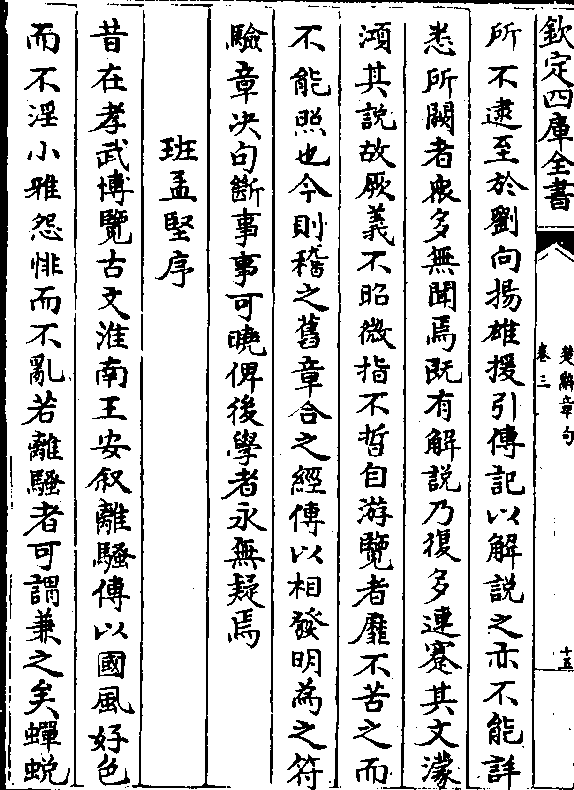 欽定四庫全書
楚辭章句
卷三
十五
所不逮至於劉向揚雄援引傳記以解說之亦不能詳
悉所闕者衆多無聞焉既有解說乃復多連蹇其文濛
澒其說故厥義不昭微指不晢自游覽者靡不苦之而
不能照也今則稽之舊章合之經傳以相發明為之符
驗章决句斷事事可曉俾後學者永無疑焉
班孟堅序
昔在孝武博覽古文淮南王安叙離騷傳以國風好色
而不淫小雅怨悱而不亂若離騷者可謂兼之矣蟬蛻